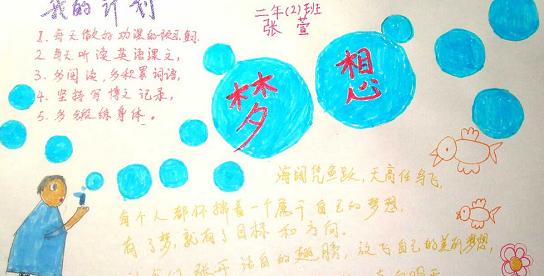 我的计划
二年(2)班
张萱
1. 每天做好功课的预习
2. 每天听读英语课文,
3. 多阅读,多积累词语,
4. 坚持写博文记录,
5. 多锻练身体。
梦想
海阔凭鱼跃,天高任鸟飞,
每个人都怀揣着一个属于自己的梦想,
有了梦,就有了目标和方向。
张开洁白的翅膀,放飞自己的美丽梦想,